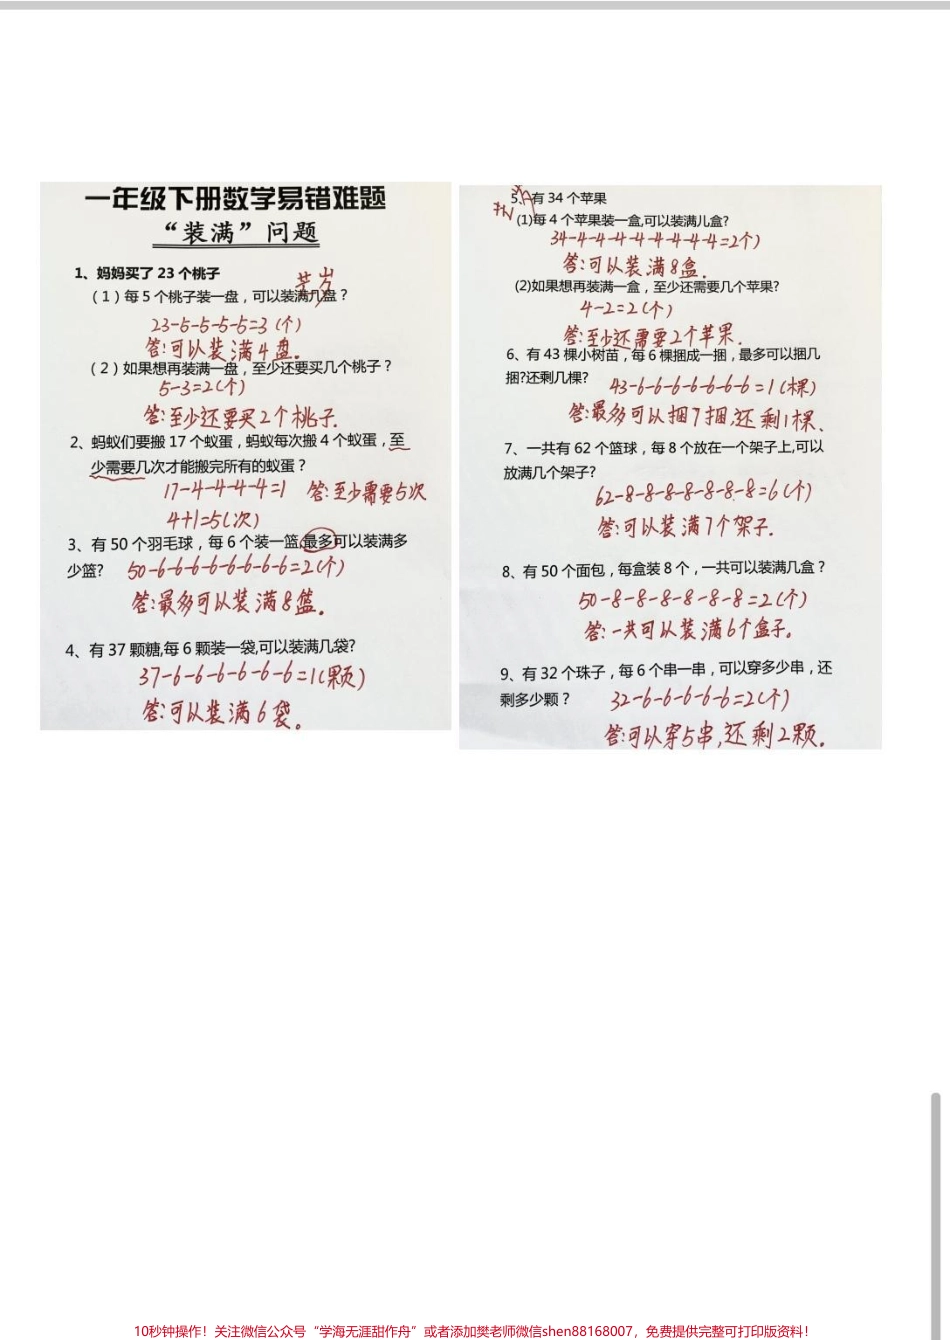 一年级下册数学易错难题
“装满”问题
1、妈妈买了 23 个桃子
（1）每 5 个桃子装一盘，可以装满几盘？
23-5-5-5-5=3（个）
答:可以装满4盘。
（2）如果想再装满一盘，至少还要买几个桃子？
5-3=2（个）
答:至少还要买2个桃子.
2、蚂蚁们要搬 17 个蚁蛋，蚂蚁每次搬 4 个蚁蛋，至
少需要几次才能搬完所有的蚁蛋？
17-4-4-4-4=1 答:至少需要5次
4+1=5（次）
3、有 50 个羽毛球，每 6 个装一篮,最多可以装满多
少篮?
50-6-6-6-6-6-6-6-6=2（个）
答:最多可以装满8篮.
4、有 37 颗糖,每 6 颗装一袋,可以装满几袋?
37-6-6-6-6-6-6=1（颗）
答:可以装满6袋。
5、有 34 个苹果
(1)每 4 个苹果装一盒,可以装满儿盒?
34-4-4-4-4-4-4-4-4=2个）
答:可以装满8盒.
(2)如果想再装满一盒，至少还需要几个苹果?
4-2=2（个）
答:至少还需要2个苹果.
6、有 43 棵小树苗，每 6 棵捆成一捆，最多可以捆几
捆?还剩几棵?
43-6-6-6-6-6-6-6=1（棵）
答:最多可以捆7捆,还剩1棵、
7、一共有 62 个篮球，每 8 个放在一个架子上,可以
放满几个架子?
62-8-8-8-8-8-8-8=6（个）
答:可以装满7个架子.
8、有 50 个面包，每盒装 8 个，一共可以装满几盒？
50-8-8-8-8-8-8=2（个）
答:一共可以装满6个盒子。
9、有 32 个珠子，每 6 个串一串，可以穿多少串，还
剩多少颗？
32-6-6-6-6-6=2（个）
答:可以穿5串,还剩2颗.
10秒钟操作！关注微信公众号“学海无涯甜作舟”或者添加樊老师微信shen88168007，免费提供完整可打印版资料！